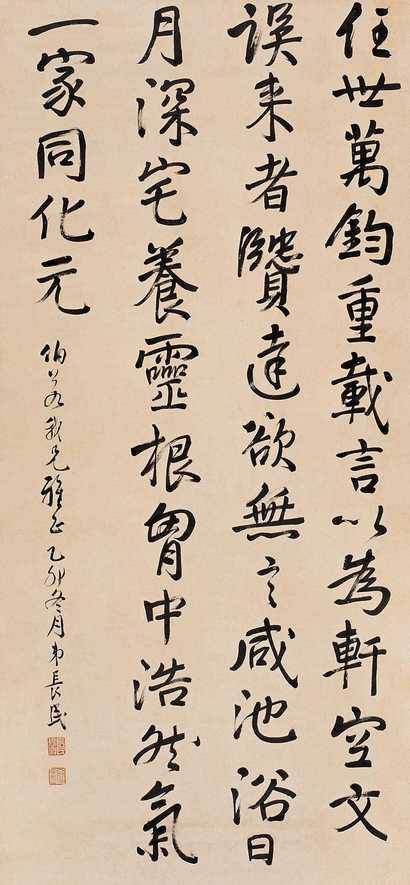 任世萬鈞重載言以為軒空文
誤来者贒達欲無言咸池浴日
月深宅養靈根胷中浩然氣
一家同化元
伯我兄雅正乙卯冬月弟長民